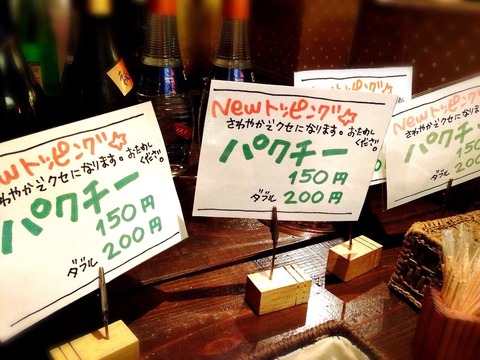 Newトッピング☆
さわやか㌠クセになります。おためし
ください。
パクチー
150円
ダブル 200円
ewトッピング☆
わやか㌠クセになります。おためし
ください。
パクチー
150円
ダブル 200円
Newトッピング☆
さわやか㌠クセになりま
パクチー
150
ダブル 200